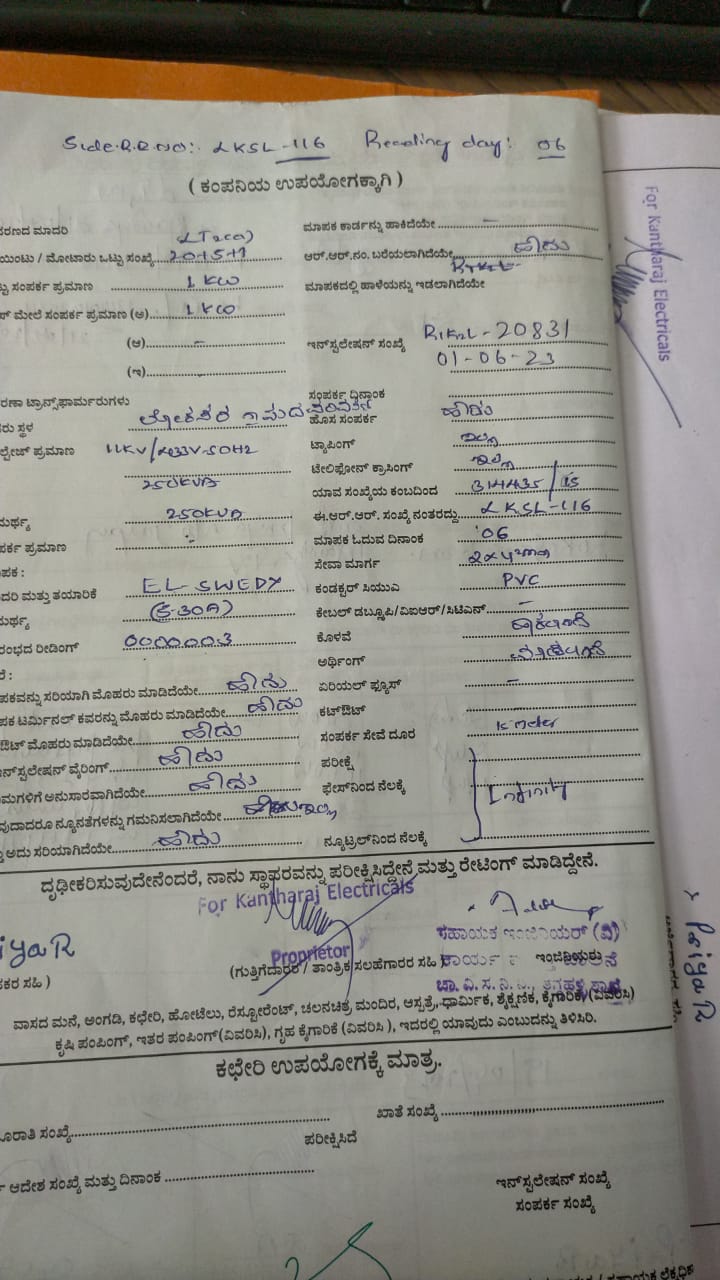 Side.R.R.NO:. LKSL-116 Reading day: 06
( ಕಂಪನಿಯ ಉಪಯೋಗಕ್ಕಾಗಿ )
ರಣದ ಮಾದರಿ
LT2(a)
ಯಿಂಟು / ಮೋಟಾರು ಒಟ್ಟು ಸಂಖ್ಯೆ
ಸಂಪರ್ಕ ಪ್ರಮಾಣ 1 KW
ಮೇಲೆ ಸಂಪರ್ಕ ಪ್ರಮಾಣ (ಅ) 1 KW
(ಆ) -
(ಇ)
ರಣಾ ಟ್ರಾನ್ಸ್‌ಫಾರ್ಮರುಗಳು
ರು ಸ್ಥಳ
ಲ್ಟೇಜ್ ಪ್ರಮಾಣ 11KV/433V-50HZ
250KVA
ಮರ್ಥ್ಯ 250KVA
ಪರ್ಕ ಪ್ರಮಾಣ
ಪಕ :
ದರಿ ಮತ್ತು ತಯಾರಿಕೆ EL SWEDY
ಮರ್ಥ್ಯ (5-30A)
ರಂಭದ ರೀಡಿಂಗ್ 0000003
ಪಕವನ್ನು ಸರಿಯಾಗಿ ಮೊಹರು ಮಾಡಿದೆಯೇ ಹೌದು
ಪಕ ಟರ್ಮಿನಲ್ ಕವರನ್ನು ಮೊಹರು ಮಾಡಿದೆಯೇ ಹೌದು
ಔಟ್ ಮೊಹರು ಮಾಡಿದೆಯೇ ಹೌದು
ನ್‌ಸ್ಟಲೇಷನ್ ವೈರಿಂಗ್ ಹೌದು
ಮಗಳಿಗೆ ಅನುಸಾರವಾಗಿದೆಯೇ ಹೌದು
ವುದಾದರೂ ನ್ಯೂನತೆಗಳನ್ನು ಗಮನಿಸಲಾಗಿದೆಯೇ ಇಲ್ಲ
ಅದು ಸರಿಯಾಗಿದೆಯೇ ಹೌದು
ಮಾಪಕ ಕಾರ್ಡನ್ನು ಹಾಕಿದೆಯೇ -
ಆರ್.ಆರ್.ನಂ. ಬರೆಯಲಾಗಿದೆಯೇ ಹೌದು
ಮಾಪಕದಲ್ಲಿ ಹಾಳೆಯನ್ನು ಇಡಲಾಗಿದೆಯೇ
ಇನ್‌ಸ್ಟಲೇಷನ್ ಸಂಖ್ಯೆ R1K2L-20831
01-06-23
ಸಂಪರ್ಕ ದಿನಾಂಕ
ಹೊಸ ಸಂಪರ್ಕ ಹೌದು
ಟ್ಯಾಪಿಂಗ್ ಇಲ್ಲ
ಟೆಲಿಫೋನ್ ಕ್ರಾಸಿಂಗ್ ಇಲ್ಲ
ಯಾವ ಸಂಖ್ಯೆಯ ಕಂಬದಿಂದ
ಈ.ಆರ್.ಆರ್. ಸಂಖ್ಯೆ ನಂತರದ್ದು LKSL-116
ಮಾಪಕ ಓದುವ ದಿನಾಂಕ '06
ಸೇವಾ ಮಾರ್ಗ 2x4
ಕಂಡಕ್ಟರ್ ಸಿಯುಎ PVC
ಕೇಬಲ್ ಡಬ್ಲ್ಯೂಪಿ/ವಿಐಆರ್/ಸಿಟಿಎಸ್ -
ಕೊಳವೆ
ಅರ್ಥಿಂಗ್
ಏರಿಯಲ್ ಫ್ಯೂಸ್ -
ಕಟ್‌ಔಟ್ -
ಸಂಪರ್ಕ ಸೇವೆ ದೂರ meter
ಪರೀಕ್ಷೆ
ಫೇಸ್‌ನಿಂದ ನೆಲಕ್ಕೆ Infinity
ನ್ಯೂಟ್ರಲ್‌ನಿಂದ ನೆಲಕ್ಕೆ
ದೃಢೀಕರಿಸುವುದೇನೆಂದರೆ, ನಾನು ಸ್ಥಾವರವನ್ನು ಪರೀಕ್ಷಿಸಿದ್ದೇನೆ ಮತ್ತು ರೇಟಿಂಗ್ ಮಾಡಿದ್ದೇನೆ.
For Kantharaj Electricals
Proprietor
iya R
ಕರ ಸಹಿ )
(ಗುತ್ತಿಗೆದಾರರ / ತಾಂತ್ರಿಕ ಸಲಹೆಗಾರರ ಸಹಿ )
ಸಹಾಯಕ ಇಂಜಿನಿಯರ್ (ವಿ)
ಇಂಜಿನಿಯರು
ವಾಸದ ಮನೆ, ಅಂಗಡಿ, ಕಛೇರಿ, ಹೋಟೆಲು, ರೆಸ್ಟೋರೆಂಟ್, ಚಲನಚಿತ್ರ, ಮಂದಿರ, ಆಸ್ಪತ್ರೆ, ಧಾರ್ಮಿಕ, ಶೈಕ್ಷಣಿಕ, ಕೈಗಾರಿಕೆ (ವಿವರಿಸಿ)
ಕೃಷಿ ಪಂಪಿಂಗ್, ಇತರ ಪಂಪಿಂಗ್(ವಿವರಿಸಿ), ಗೃಹ ಕೈಗಾರಿಕೆ (ವಿವರಿಸಿ ), ಇದರಲ್ಲಿ ಯಾವುದು ಎಂಬುದನ್ನು ತಿಳಿಸಿರಿ.
ಕಛೇರಿ ಉಪಯೋಗಕ್ಕೆ ಮಾತ್ರ.
ರಾತಿ ಸಂಖ್ಯೆ
ಖಾತೆ ಸಂಖ್ಯೆ
ಪರೀಕ್ಷಿಸಿದೆ
ಆದೇಶ ಸಂಖ್ಯೆ ಮತ್ತು ದಿನಾಂಕ
ಇನ್‌ಸ್ಟಲೇಷನ್ ಸಂಖ್ಯೆ
ಸಂಪರ್ಕ ಸಂಖ್ಯೆ
For Kantharaj Electricals
Priya R